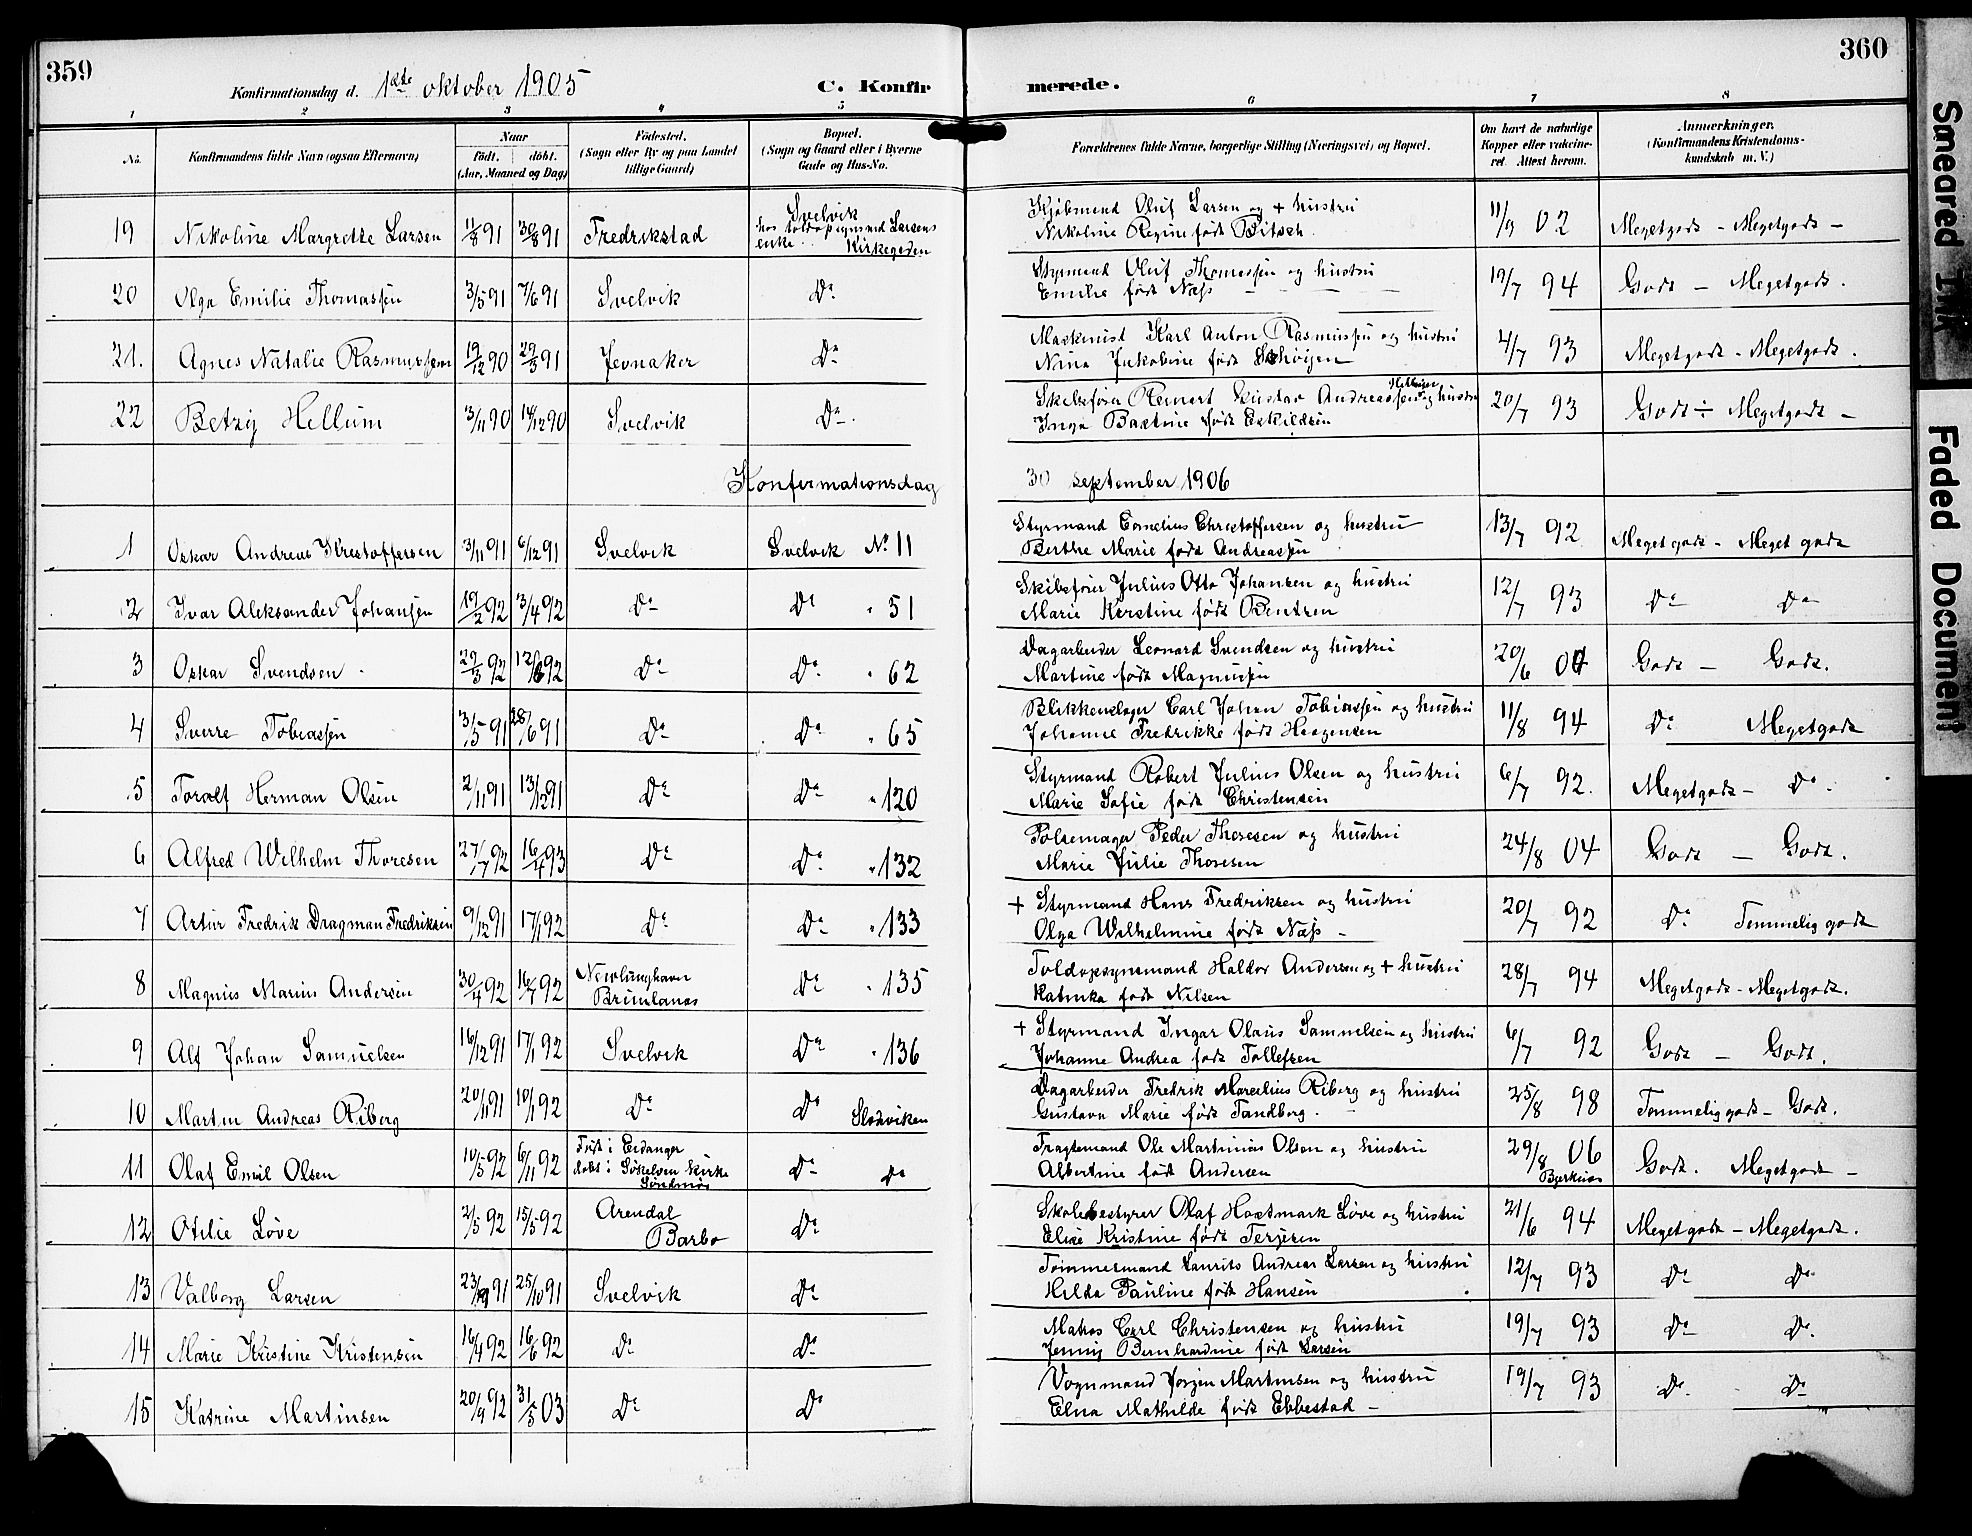 359
Konfirmationsdag d. 1ste oktober 1905
C. Konfirmerede.
360
1 2 3 4 5 6 7 8
No.
Konfirmandens fulde Navn (ogsaa Efternavn)
Naar
født. døbt.
(Aar, Maaned og Dag)
Fødested.
(Sogn eller By og paa Landet
tillige Gaard)
Bopæl.
(Sogn og Gaard eller i Byerne
Gade og Hus-No.
Forældrenes fulde Navne, borgerlige Stilling (Næringsvei) og Bopæl.
Om havt de naturlige
Kopper eller vakcine-
ret. Attest herom.
Anmærkninger.
(Konfirmandens Kristendoms-
kundskab m. V.)
19 Nikoline Margrethe Larsen 11/8 91 30/8 91 Fredrikstad Svelvik
hos toldopsynsmd Larsens
enke Kirkegaden
Kjøbmend Oluf Larsen og + hustru
Nikoline Regine født Bitsch
11/9 02 Megetgodt - Megetgodt -
20 Olga Emilie Thomassen 3/5 91 7/6 91 Svelvik Do
Styrmend Oluf Thomassen og hustru
Emilie født Næss
19/7 94 Godt - Megetgodt.
21. Agnes Natalie Rasmussen 19/12 90 29/3 91 Jevnaker Do
Maskenist Karl Anton Rasmussen og hustru
Nina Jakobine født
4/7 93 Megetgodt - Megetgodt.
22 Betzy Hellum 3/11 90 14/12 90 Svelvik Do
Skibsfører Reinert Gustav Andreassen og hustru
Inga Bastine født Eskildsen
20/7 93 Godt - Megetgodt -
Konfirmationsdag 30 september 1906
1 Oskar Andreas Kristoffersen 3/11 91 6/12 91 Svelvik Svelvik No 11
Styrmand Cornelius Christoffersen og hustru
Berthe Marie født Andreassen
13/7 92 Megetgodt - Meget godt
2 Ivar Aleksander Johansen 19/2 92 3/4 92 Do Do " 51
Skibsfører Julius Otto Johansen og hustru
Marie Kirstine født Bentzen
12/7 93 Do Do
3 Oskar Svendsen 29/3 92 12/6 92 Do Do " 62
Dagarbeider Leonard Svendsen og hustru
Martine født Magnussen
20/6 04 Godt - Godt.
4 Sverre Tobiassen 3/5 91 28/6 91 Do Do " 65
Blikkenslager Carl Johan Tobiassen og hustru
Johanne Fredrikke født Haagensen
11/8 94 Do Megetgodt
5 Toralf Herman Olsen 2/11 91 13/12 91 Do Do " 120
Styrmand Robert Julius Olsen og hustru
Marie Sofie født Christensen
6/7 92. Megetgodt - Do
6 Alfred Wilhelm Thoresen 27/7 92 16/4 93 Do Do " 132
Pølsemager Peder Thoresen og hustru
Marie Julie Thoresen
24/8 04 Godt - Godt.
7 Artur Fredrik Dragman Fredriksen 9/12 91 17/1 92 Do Do " 133
+ Styrmand Hans Fredriksen og hustru
Olga Wilhelmine født Næss -
20/7 92 Do Temmelig godt
8 Magnus Marius Andersen 30/4 92 16/7 92 Nevlunghavn
Brunlanæs Do " 135
Toldopsynsmand Haldor Andersen og + hustru
Katinka født Nilsen
28/7 94 Megetgodt - Megetgodt.
9 Alf Johan Samuelsen 16/12 91 17/1 92 Svelvik Do " 136
+ Styrmand Ingar Olaus Samuelsen og hustru
Johanne Andrea født Tollefsen
6/7 92 Godt - Godt.
10 Martin Andreas Riberg 20/11 91 10/1 92 Do Do
Dagarbeider Fredrik Marcelius Riberg og hustru
Gustava Marie født Tandberg.
25/8 98 Temmelig godt - Godt.
11 Olaf Emil Olsen 10/5 92 6/11 92 Født i Eidanger
døbt i Søkelven kirke
Søndmør Do Do
Fragtemand Ole Martinius Olsen og hustru
Albertine født Andersen
29/8 06 Godt. Megetgodt -
12 Otilie Løve 2/5 92 15/5 92 Arendal
Barbo Do
Skolebestyrer Olaf Hoxtmark Løve og hustru
Elise Kristine født Terjesen
21/6 94 Megetgodt - Megetgodt.
13 Valborg Larsen 23/9 91 25/10 91 Svelvik Do
Tømmermand Laurits Andreas Larsen og hustru
Hilda Pauline født Hansen
12/7 93 Do Do
14 Marie Kristine Kristensen 16/4 92 16/6 92 Do Do
Matros Carl Christensen og hustru
Jenny Bernhardine født Larsen
19/7 93 Do Do.
15 Katrine Martinsen 20/9 92 31/5 03 Do Do
Vognmand Jørgen Martinsen og hustru
Elna Mathilde født Ebbestad -
19/7 93 Do. Do
Smeared Ink
Faded Document